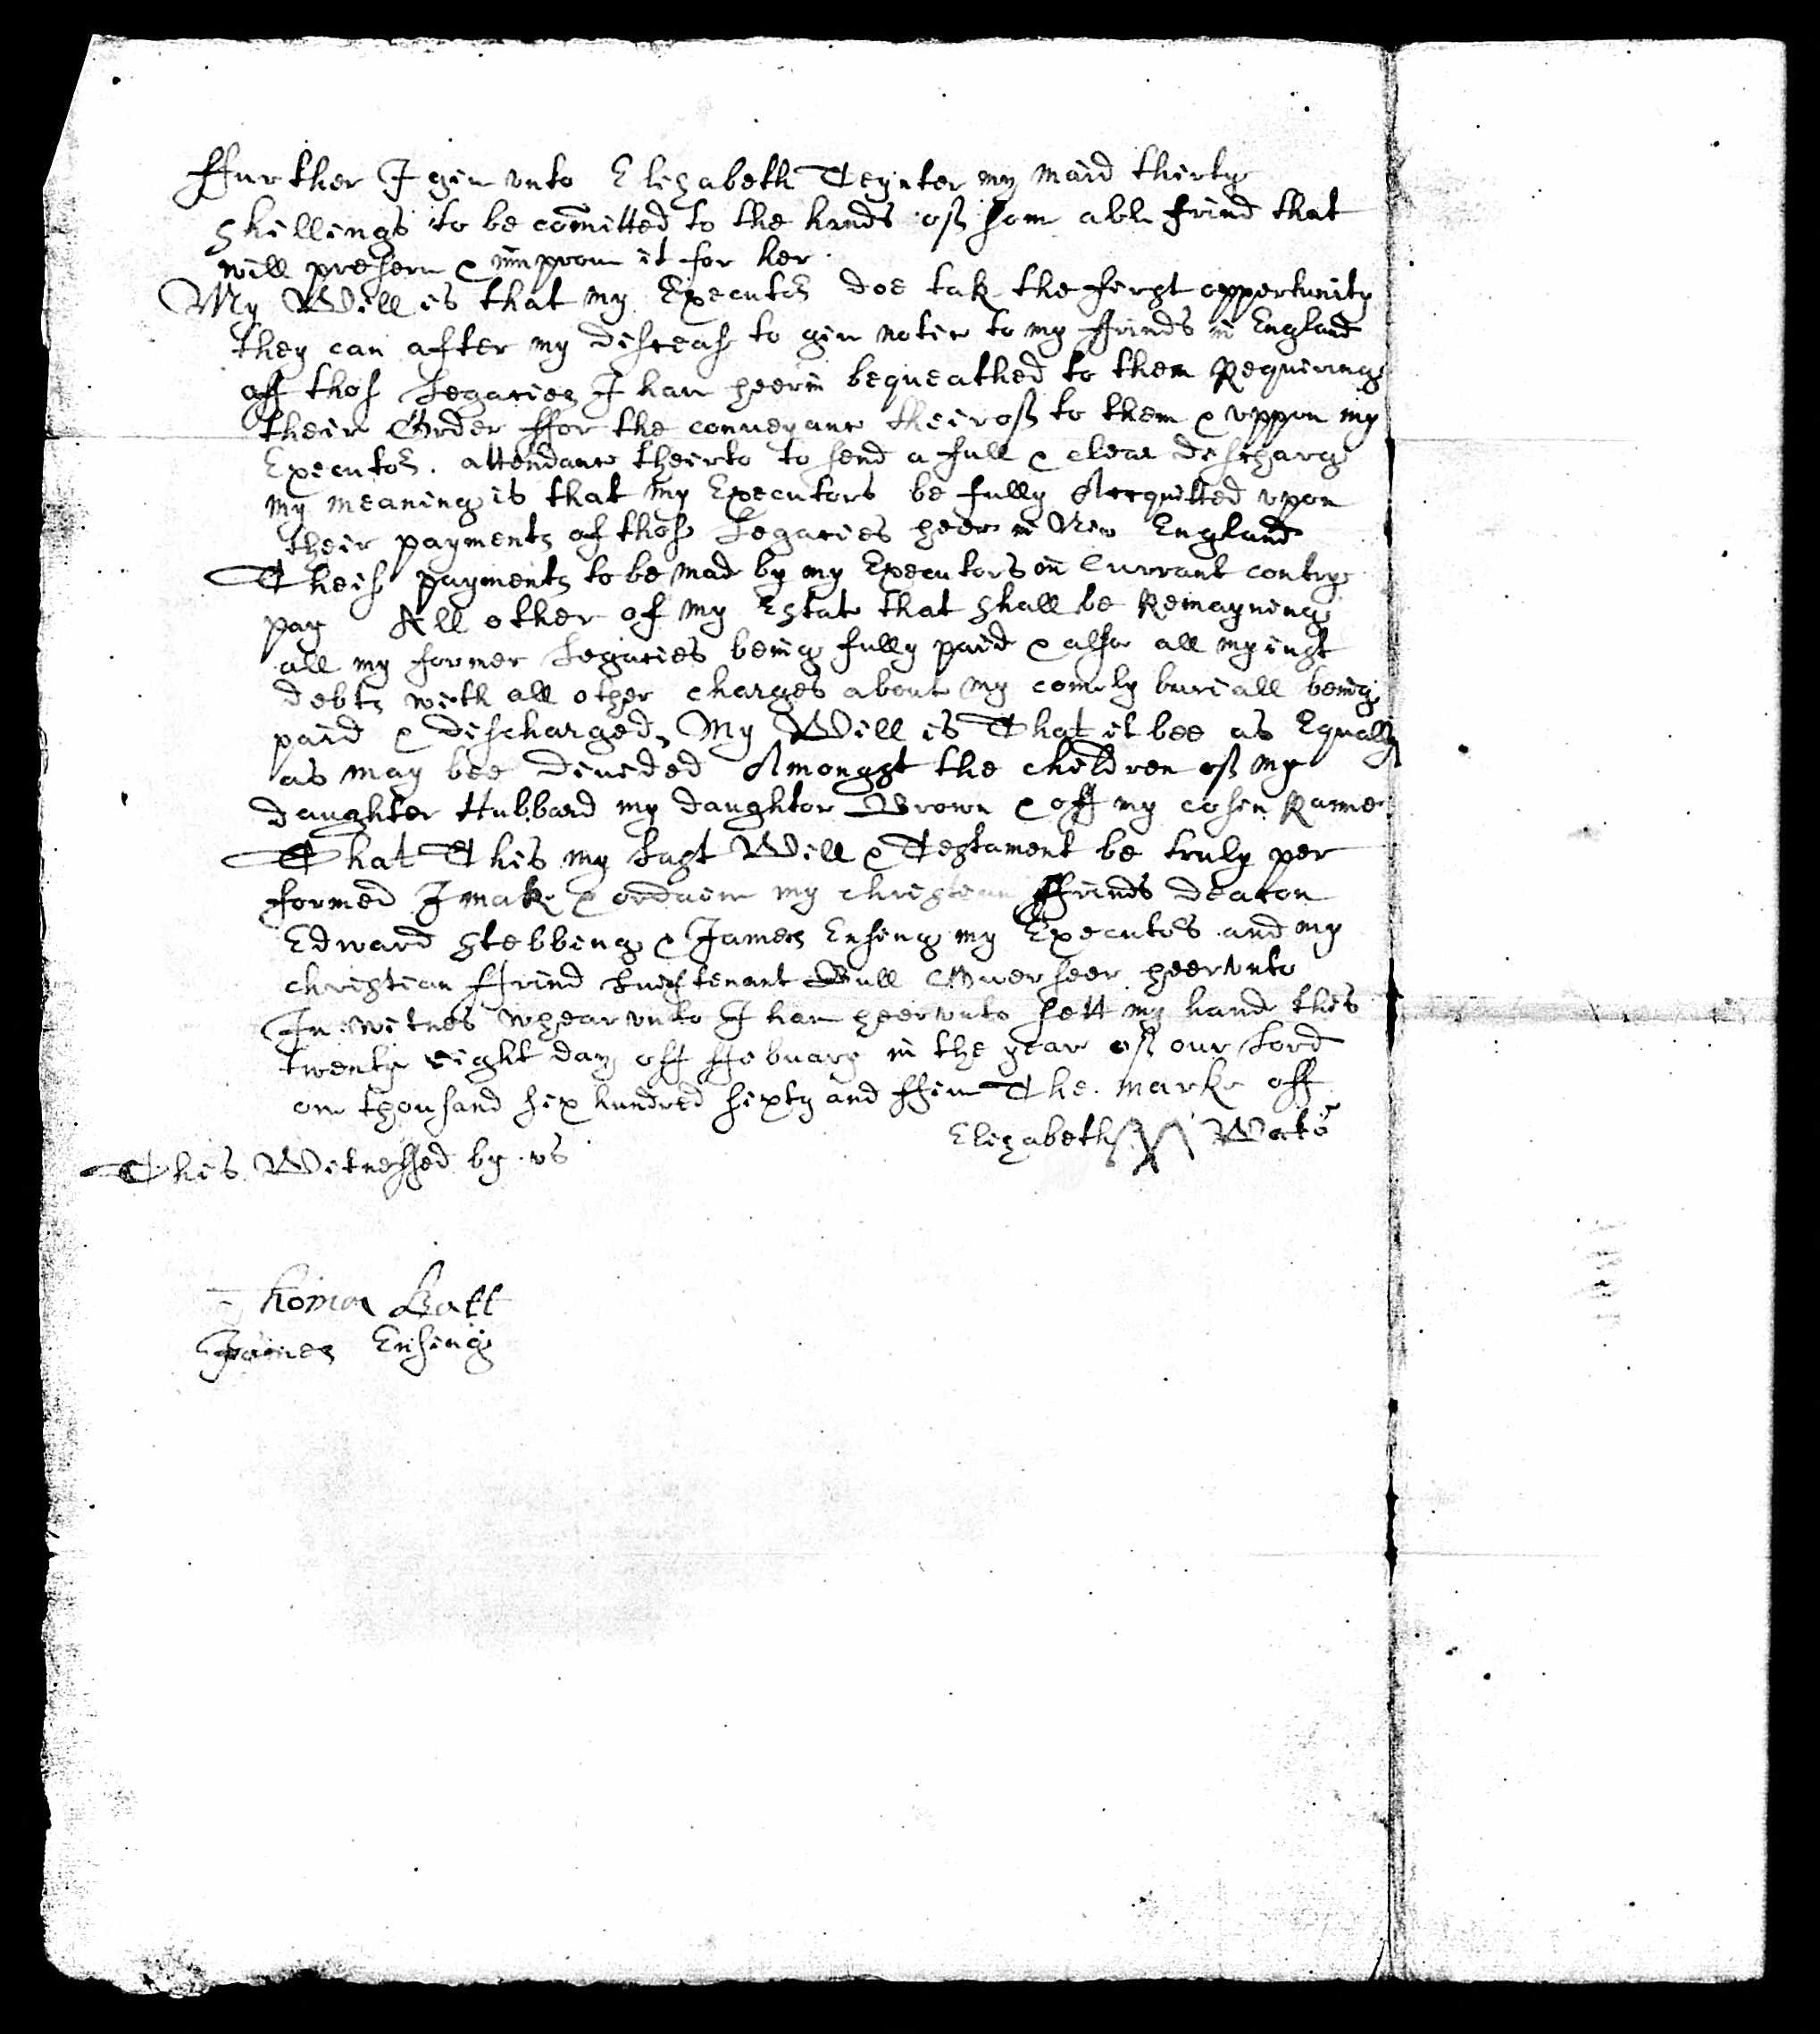 ffurther I giue vnto Elizabeth Teynter my maid thirty
shillings to be com̄itted to the hands off som able frind that
will preserue & improue it for her.
My Will is that my Executors doe take the first oppertunity
they can after my disceas to giue notice to my ffrinds in England
off thos Legacies I haue heerin bequeathed to them Requiring
their Order ffor the conueyance theiroff to them & vppon my
Executors. attendance theirto to send a full & clear discharg
my meaning is that my Executors be fully Accquitted vpon
their payments of thos Legacies heer in New England
Theis payments to be made by my Executors in Currant contry
pay All other of my Estate that shall be Remayning
all my former Legacies being fully paid & also all my iust
debts with all other charges about my comely buriall being
paid & discharged, My Will is That it bee as Equally
as may bee deuided Amongst the children off my
daughter Hubbard my daughter Brown & off my cosin
That This my Last Will & Testament be truly per
formed I make & ordaine my christian ffrinds deacon
Edward Stebbing & James Ensing my Executors and my
christian ffrind Luieftenant Bull Ouerseer heervnto
In witnes whearvnto I haue heervnto sett my hand this
twenty eight day off ffebuary in the year off our Lord
one thousand six hundred sixty and ffiue The marke off
Elizabeth Wats
This Witnessed by vs
Thomas Bull
James Ensing